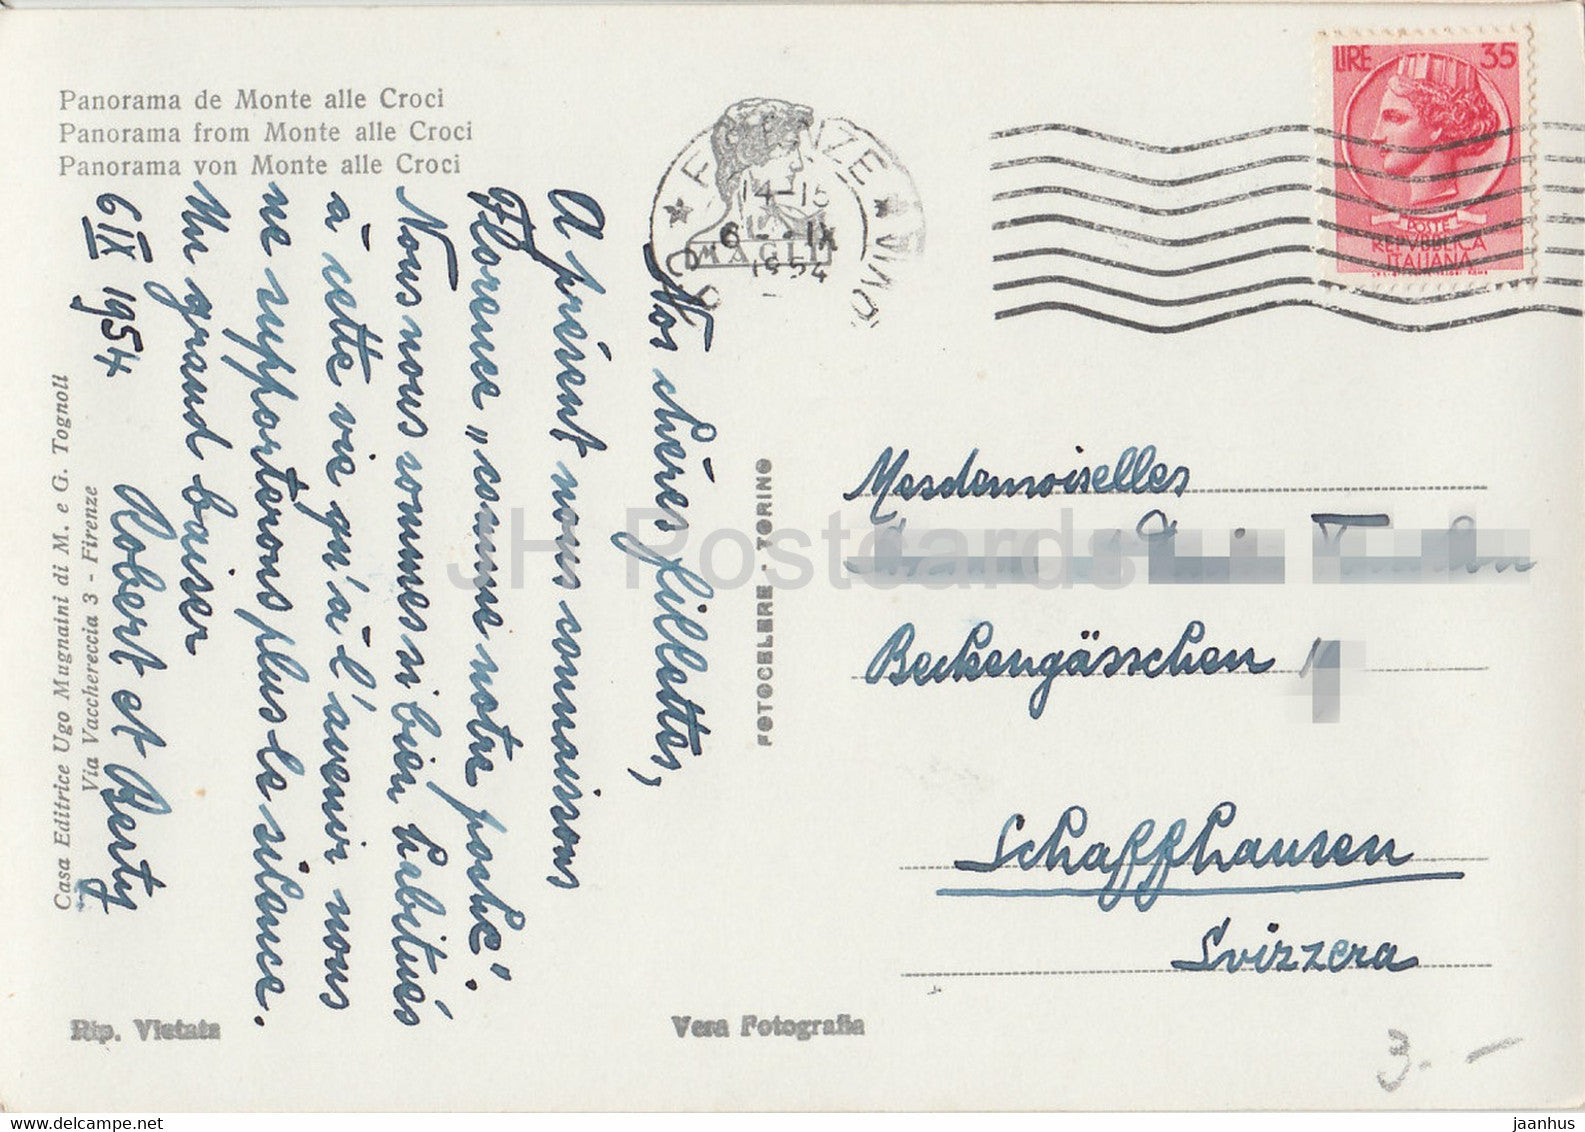 Panorama de Monte alle Croci
Panorama from Monte alle Croci
Panorama von Monte alle Croci
Casa Editrice Ugo Mugnaini di M. e G. Tognoli
Via Vacchereccia 3 - Firenze
Nos chères fillettes,
A présent nous connaissons
Florence „comme notre poche”.
Nous nous sommes si bien habitués
à cette vie qu'à l'avenir nous
ne supporterons plus le silence.
Un grand baiser
6 IX 1954 Robert et Berty
Rip. Vietata
Vera Fotografia
FOTOCELERE - TORINO
FIRENZE
14-15
6 - IX
1954
LIRE 35
POSTE
REPVBBLICA
ITALIANA
Mesdemoiselles
Beckengässchen
Schaffhausen
Svizzera
3.-
JH Postcards
jaanhus